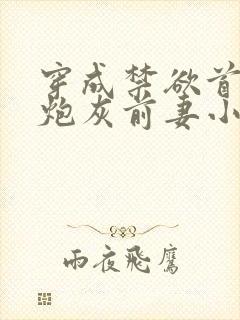 穿成禁欲首
炮灰前妻小
雨夜飛鷹